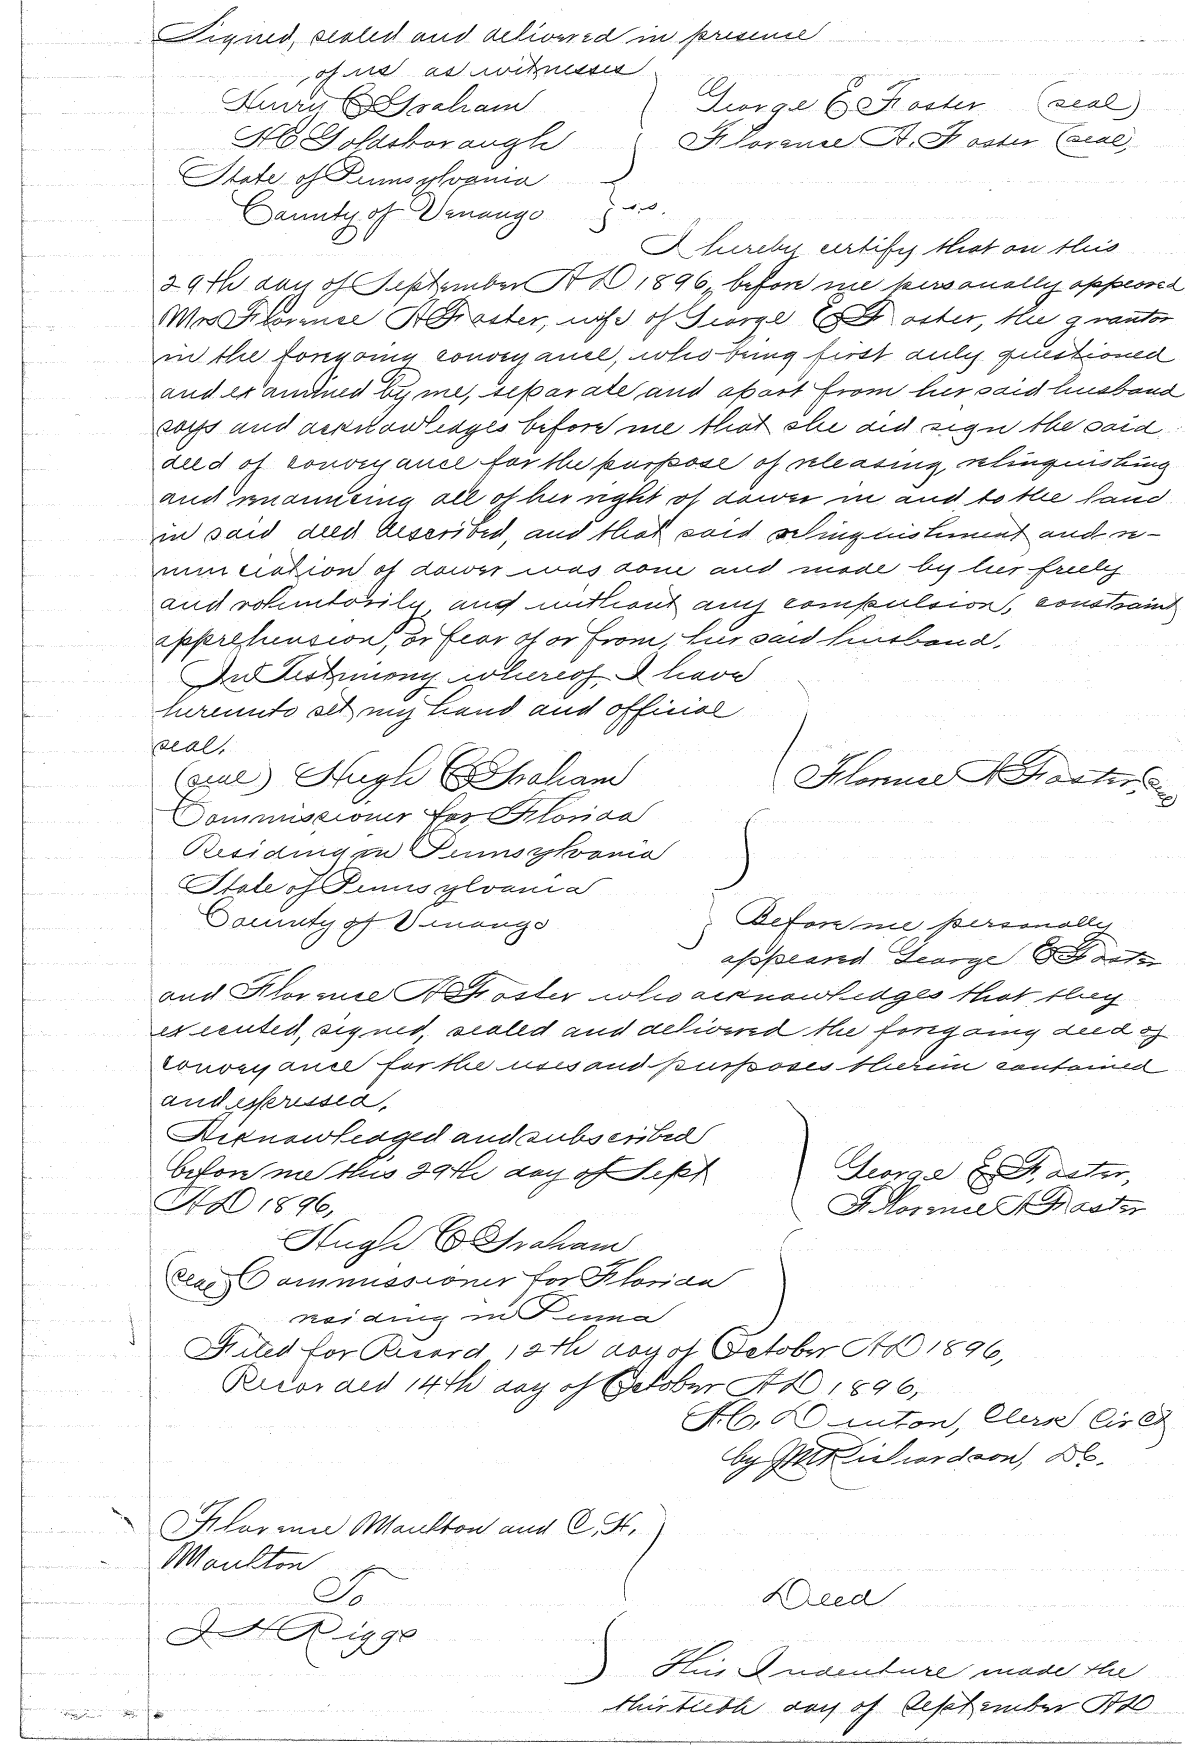 Signed, sealed and delivered in presence
of us as witnesses
Henry C Graham George E Foster (seal)
H C Goldsborough Florence A. Foster (seal)
State of Pennsylvania
County of Venango } s.s.
I hereby certify that on this
29th day of September A D 1896, before me personally appeared
Mrs Florence A Foster, wife of George E Foster, the grantor
in the foregoing conveyance, who being first duly questioned
and examined by me, separate and apart from her said husband
says and acknowledges before me that she did sign the said
deed of conveyance for the purpose of releasing, relinquishing
and renouncing all of her right of dower in and to the land
in said deed described, and that said relinquishment and re-
nunciation of dower was done and made by her freely
and voluntarily, and without any compulsion, constraint
apprehension, or fear of or from, her said husband.
In Testimony whereof, I have
hereunto set my hand and official
seal.
(seal) Hugh C Graham Florence A Foster, (seal)
Commissioner for Florida
Residing in Pennsylvania
State of Pennsylvania
County of Venango Before me personally
appeared George E Foster
and Florence A Foster who acknowledges that they
executed, signed, sealed and delivered the foregoing deed of
conveyance for the uses and purposes therein contained
and expressed.
Acknowledged and subscribed
before me this 29th day of Sept George E Foster,
A D 1896, Florence A Foster
Hugh C Graham
(seal) Commissioner for Florida
residing in Penna
Filed for Record 12th day of October A D 1896,
Recorded 14th day of October A D 1896,
H.C. Dunton, Clerk Cir Ct
by J M Richardson, D C.
Florence Moulton and C. H.
Moulton
To Deed
J H Riggs
This Indenture made the
thirtieth day of September A D